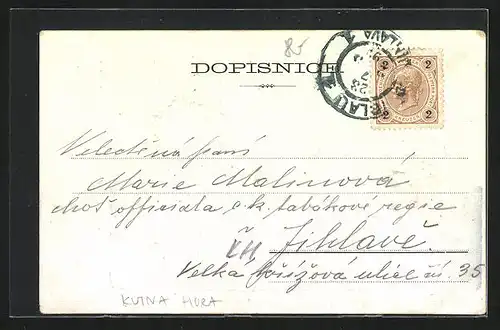 DOPISNICE
2 2
2 2
IGLAU
JIHLAVA
Veledůstojná paní
Marie Malinová
choť officiala c. k. tabákové regie
v Jihlavě
Velká křížová ulice čí. 35
KUTNA HORA